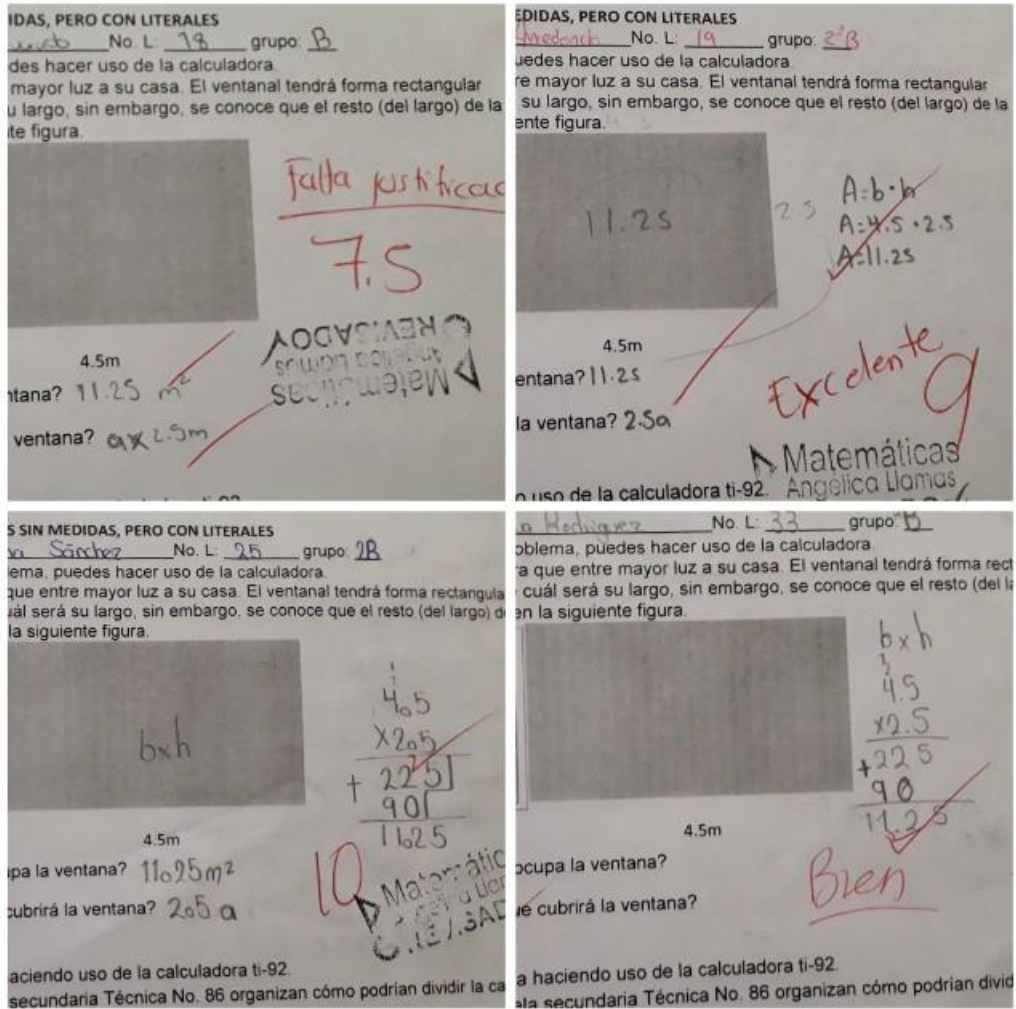 IDAS, PERO CON LITERALES
No. L: 18 grupo: B
des hacer uso de la calculadora.
mayor luz a su casa. El ventanal tendrá forma rectangular
u largo, sin embargo, se conoce que el resto (del largo) de la
te figura.
Falta justificac
7.5
4.5m
REVISADO
Angélica Llamas
Matemáticas
ntana? 11.25 m²
ventana? a x 2.5m
EDIDAS, PERO CON LITERALES
No. L: 19 grupo: 2°B
uedes hacer uso de la calculadora.
re mayor luz a su casa. El ventanal tendrá forma rectangular
su largo, sin embargo, se conoce que el resto (del largo) de la
ente figura.
11.25
2.5
A=b·h
A=4.5·2.5
A=11.25
4.5m
Excelente
9
entana? 11.25
la ventana? 2.5a
Matemáticas
Angélica Llamas
o uso de la calculadora ti-92.
S SIN MEDIDAS, PERO CON LITERALES
Sánchez No. L: 25 grupo: 2B
lema, puedes hacer uso de la calculadora.
que entre mayor luz a su casa. El ventanal tendrá forma rectangula
uál será su largo, sin embargo, se conoce que el resto (del largo) d
la siguiente figura.
bxh
4.5
x2.5
+ 225
90
11.25
4.5m
pa la ventana? 11.25m²
cubrirá la ventana? 2.5 a
10
Matemátic
aciendo uso de la calculadora ti-92.
secundaria Técnica No. 86 organizan cómo podrían dividir la ca
Rodriguez No. L: 33 grupo: B
oblema, puedes hacer uso de la calculadora.
ra que entre mayor luz a su casa. El ventanal tendrá forma rect
cuál será su largo, sin embargo, se conoce que el resto (del la
en la siguiente figura.
bxh
4.5
x2.5
+225
90
11.25
4.5m
ocupa la ventana?
Bien
ue cubrirá la ventana?
a haciendo uso de la calculadora ti-92.
ela secundaria Técnica No. 86 organizan cómo podrían divid